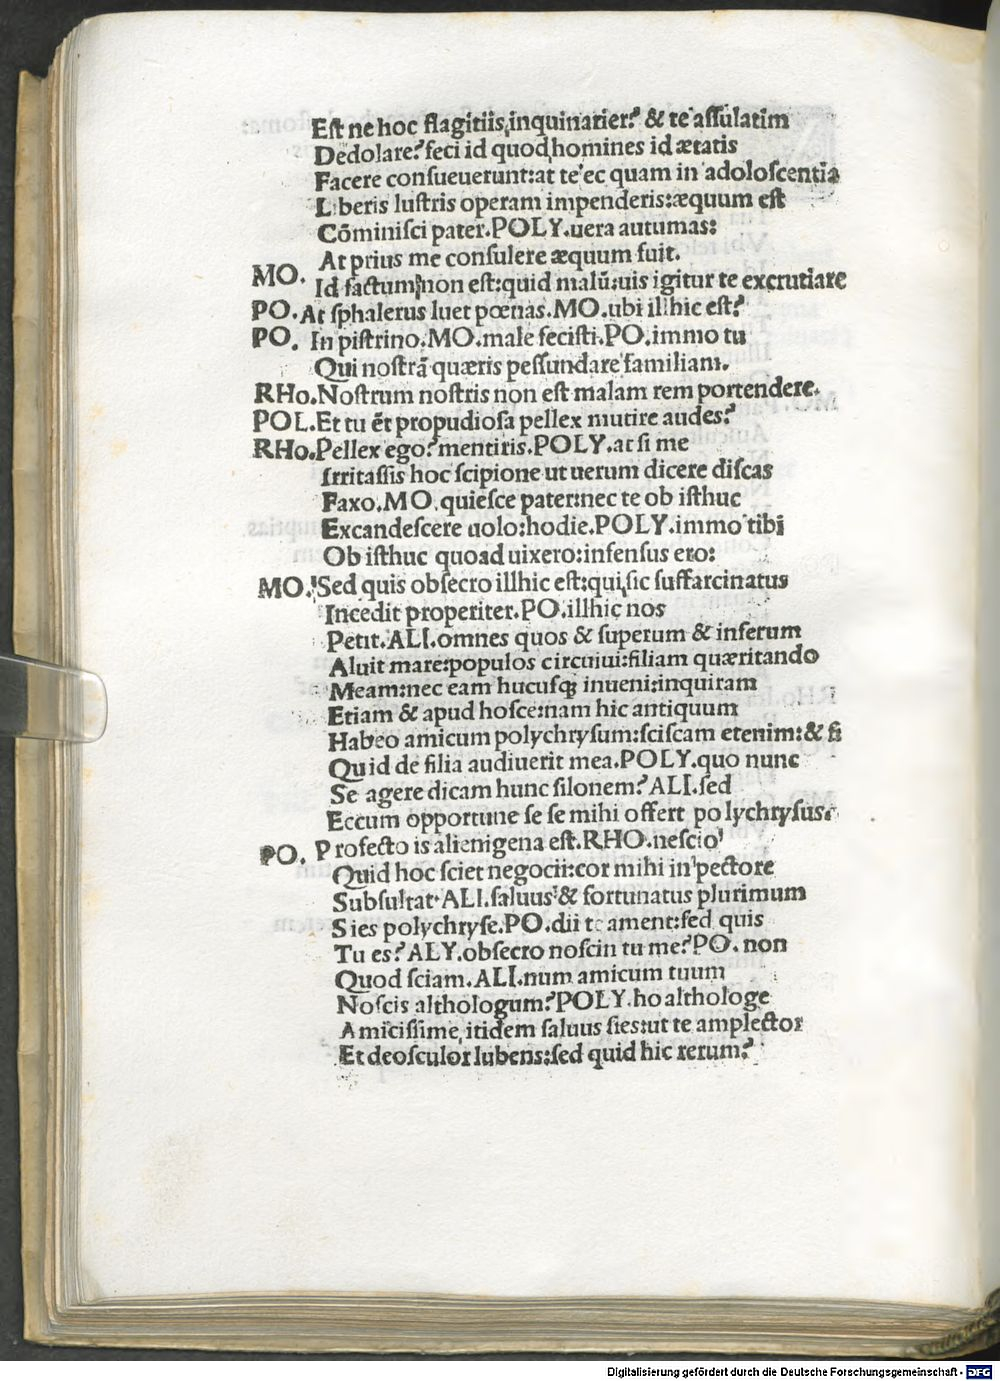 Eſt ne hoc flagitiis inquinarier? & te aſſulatim
Dedolare? feci id quod homines id ætatis
Facere conſueuerunt: at te ec quam in adoloſcentia
Liberis luſtris operam impenderis: æquum eſt
Cōminiſci pater. POLY. uera autumas:
At prius me conſulere æquum fuit.
MO. Id factum non eſt: quid malū: uis igitur te excrutiare
PO. At ſphalerus luet pœnas. MO. ubi illhic eſt?
PO. In piſtrino. MO. male feciſti. PO. immo tu
Qui noſtrā quæris peſſundare familiam.
RHo. Noſtrum noſtris non eſt malam rem portendere.
POL. Et tu ēt propudioſa pellex mutire audes?
RHo. Pellex ego? mentiris. POLY. at ſi me
Irritaſſis hoc ſcipione ut uerum dicere diſcas
Faxo. MO. quieſce pater: nec te ob iſthuc
Excandeſcere uolo: hodie. POLY. immo tibi
Ob iſthuc quoad uixero: infenſus ero:
MO. Sed quis obſecro illhic eſt: qui ſic ſuffarcinatus
Incedit properiter. PO. illhic nos
Petit. ALI. omnes quos & ſuperum & inferum
Aluit mare: populos circuiui: filiam quæritando
Meam: nec eam hucuſq; inueni: inquiram
Etiam & apud hoſce: nam hic antiquum
Habeo amicum polychryſum: ſciſcam etenim: & ſi
Quid de filia audiuerit mea. POLY. quo nunc
Se agere dicam hunc ſilonem? ALI. ſed
Eccum opportune ſe ſe mihi offert polychryſus.
PO. Profecto is alienigena eſt. RHO. neſcio
Quid hoc ſciet negocii: cor mihi in pectore
Subſultat. ALI. ſaluus & fortunatus plurimum
Sies polychryſe. PO. dii te ament: ſed quis
Tu es? ALY. obſecro noſcin tu me? PO. non
Quod ſciam. ALI. num amicum tuum
Noſcis althologum? POLY. ho althologe
Amiciſſime, itidem ſaluus ſies: ut te amplector
Et deoſculor lubens: ſed quid hic rerum?
Digitalisierung gefördert durch die Deutsche Forschungsgemeinschaft - DFG